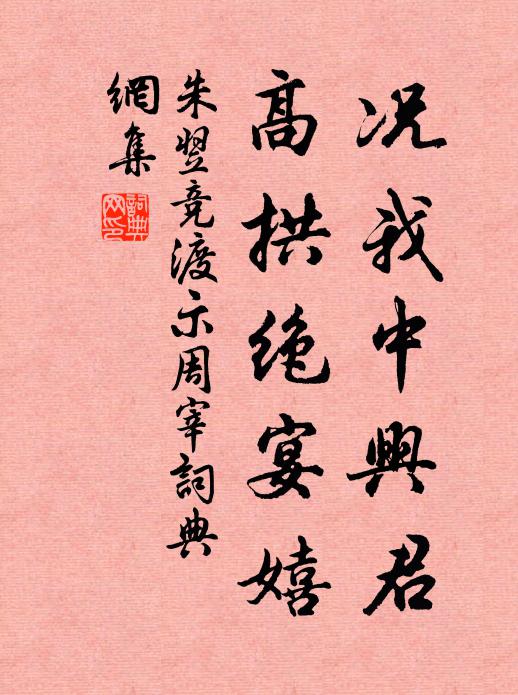 況我中興君
高拱絶宴嬉
朱翌竞渡示周宰詞典
網集
詞典網印